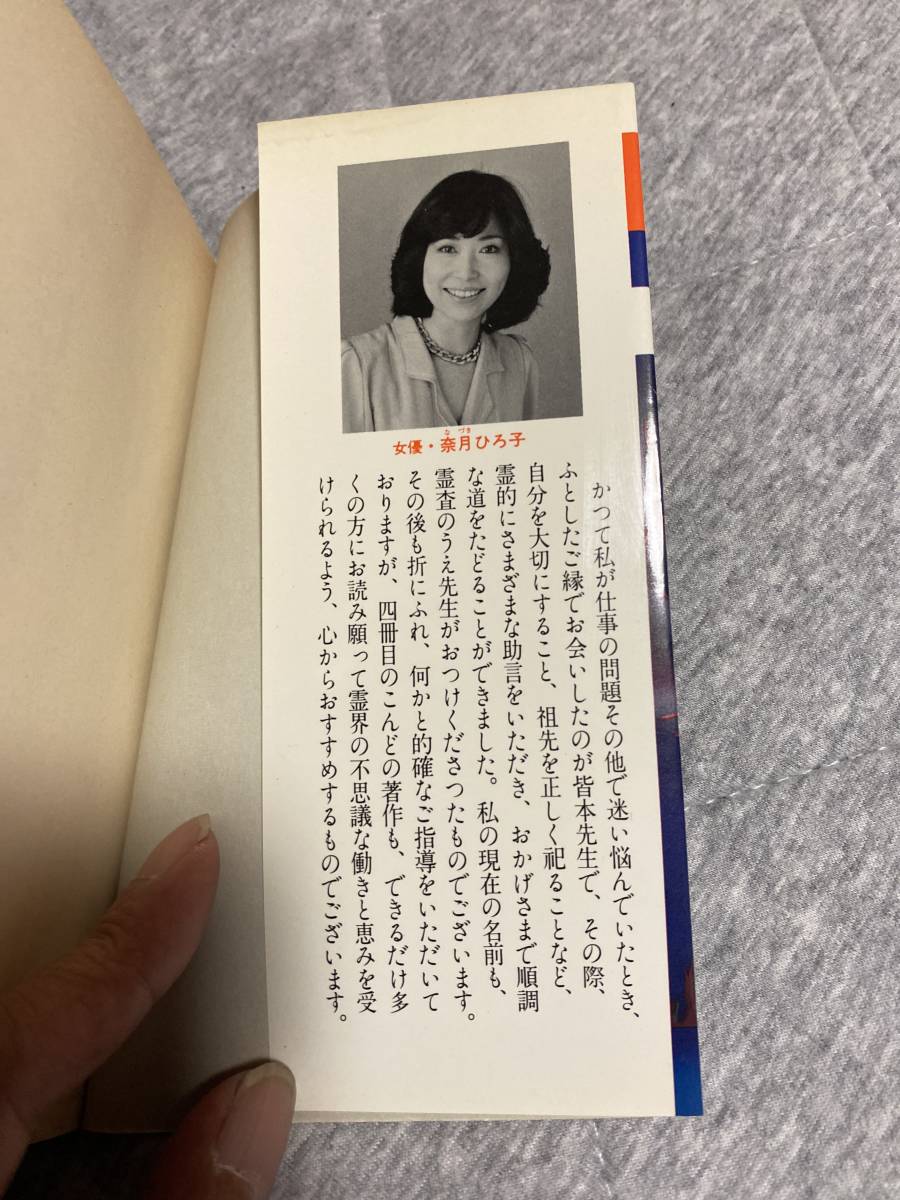 女優・奈月ひろ子
なづき
かつて私が仕事の問題その他で迷い悩んでいたとき、
ふとしたご縁でお会いしたのが皆本先生で、その際、
自分を大切にすること、祖先を正しく祀ることなど、
霊的にさまざまな助言をいただき、おかげさまで順調
な道をたどることができました。私の現在の名前も、
霊査のうえ先生がおつけくださつたものでございます。
その後も折にふれ、何かと的確なご指導をいただいて
おりますが、四冊目のこんどの著作も、できるだけ多
くの方にお読み願って霊界の不思議な働きと恵みを受
けられるよう、心からおすすめするものでございます。